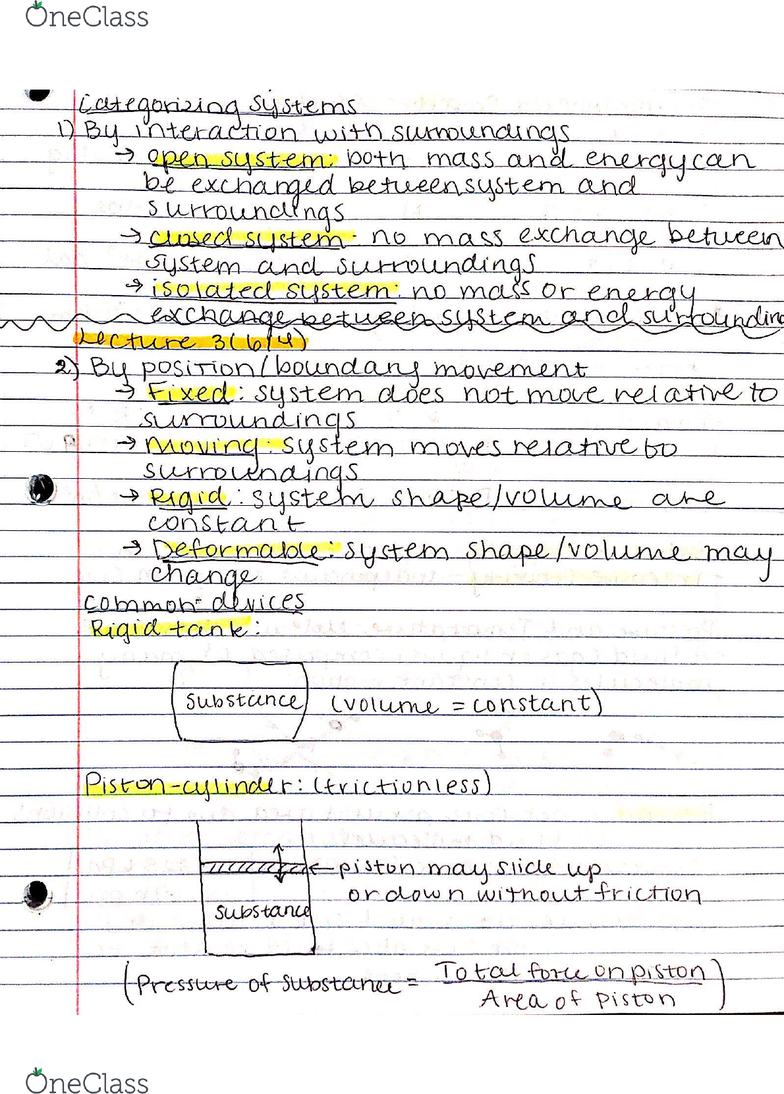 OneClass
Categorizing systems
1) By interaction with surroundings
→ open system: both mass and energy can
be exchanged between system and
surroundings
→ closed system: no mass exchange between
system and surroundings
→ isolated system: no mass or energy
exchange between system and surrounding
Lecture 3 (6/4)
2) By position/boundary movement
→ Fixed: system does not move relative to
surroundings
→ Moving: system moves relative to
surroundings
→ Rigid: system shape/volume are
constant
→ Deformable: system shape/volume may
change
common devices
Rigid tank:
substance (volume = constant)
Piston-cylinder: (frictionless)
← piston may slide up
or down without friction
substance
(Pressure of substance = Total force on piston
Area of piston)
OneClass